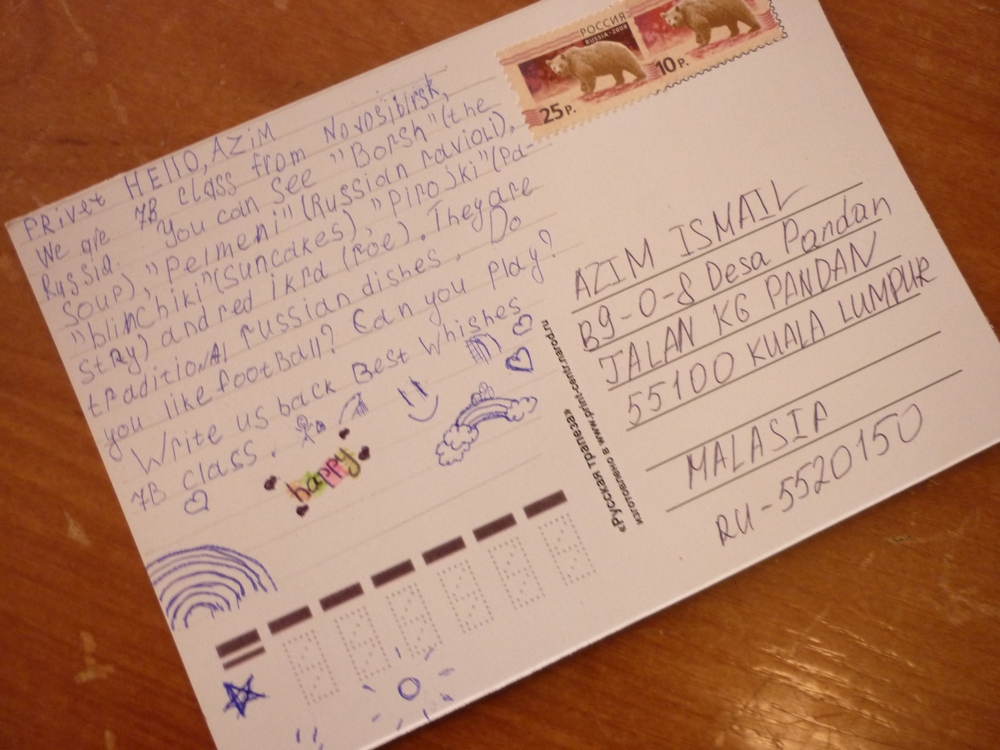 Privet HELLO, AZIM
We are 7B class from Novosibirsk,
Russia. You can see "Borsh" (the
soup), "Pelmeni" (Russian ravioli),
"blinchiki" (suncakes), "Pirojki" (pa-
stry) and red ikra (roe). They are
traditionAl russian dishes. Do
you like football? Can you play?
Write us back Best Whishes
7B class.
happy
РОССИЯ
RUSSIA · 2008
25 Р.
10 Р.
AZIM ISMAIL
B9-0-8 Desa Pandan
JALAN KG PANDAN
55100 KUALA LUMPUR
MALASIA
RU-5520150
«Русская трапеза»
изготовлено в www.print-centr.narod.ru